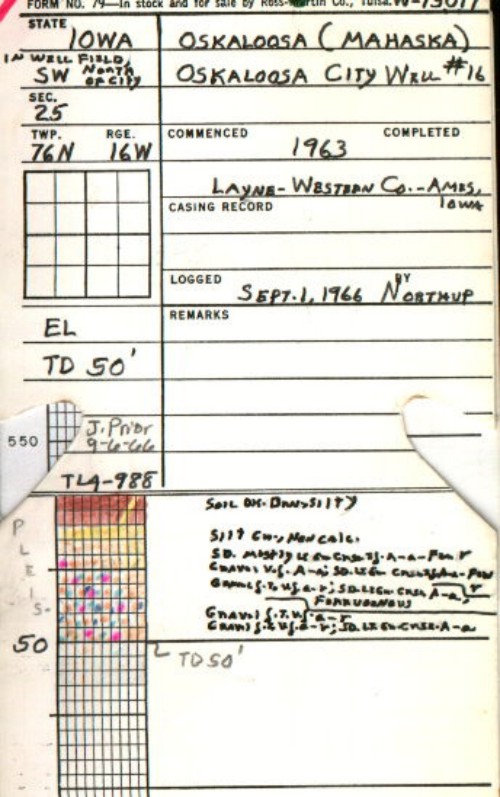 FORM NO. 79—In stock and for sale by Ross-Martin Co., Tulsa.
STATE
IOWA
OSKALOOSA (MAHASKA)
IN WELL FIELD,
SW NORTH OF CITY
OSKALOOSA CITY WELL #16
SEC.
25
TWP. RGE.
76N 16W
COMMENCED COMPLETED
1963
LAYNE-WESTERN CO.-AMES,
IOWA
CASING RECORD
LOGGED BY
SEPT. 1, 1966 NORTHUP
REMARKS
EL
TD 50'
550
J. Prior
9-6-66
TLA-988
SOIL DK. BRN-SILTY
SILT
NON CALC.
SD. MOSTLY
GRAVEL
FERRUGINOUS
GRAVEL
GRAVEL
PLEIS.
50
TD 50'